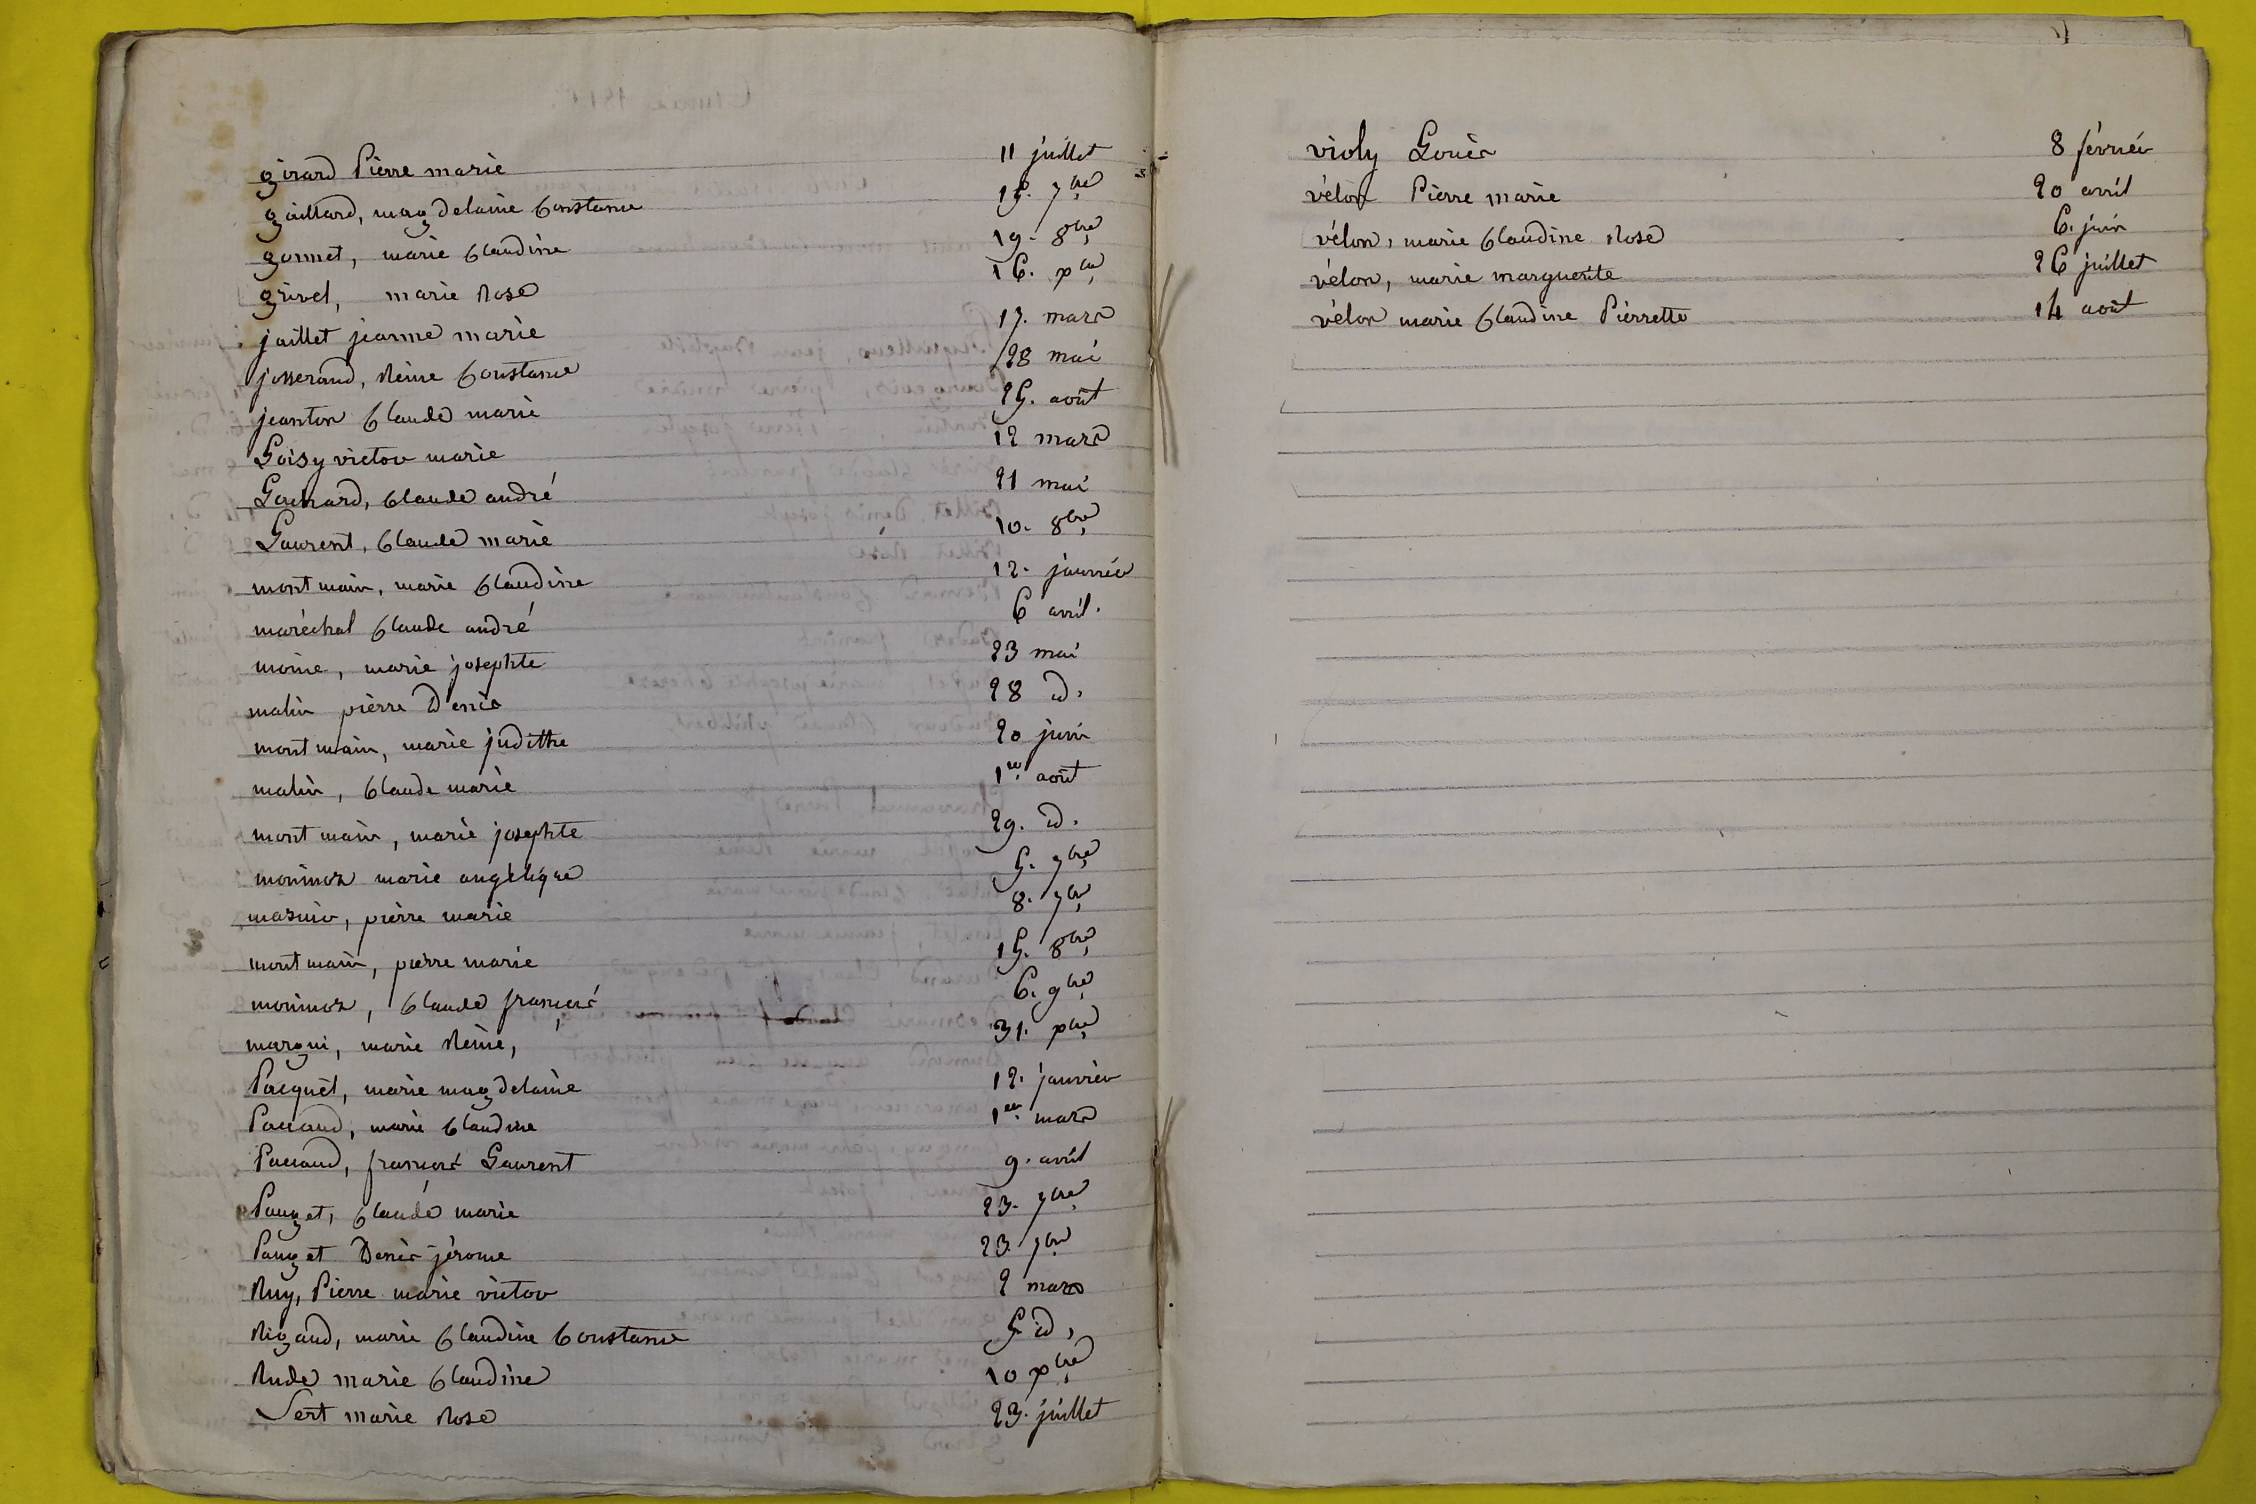 girard Pierre marie 11 juillet
gaillard, magdelaine Constance 15. 7bre
gonnet, marie Claudine 19. 8bre
grivel, marie Rose 16. xbre
jaillet jeanne marie 17. mars
josserand, Reine Constance 28 mai
jeanton Claude marie 25. août
Loisy victor marie 12 mars
Claude andré 21 mai
Laurent, Claude marie 10. 8bre
montmain, marie Claudine 12. janvier
maréchal Claude andré 6 avril.
moine, marie josephte 23 mai
malin pierre Denis 28 id.
montmain, marie judithe 20 juin
malin, Claude marie 1er août
montmain, marie josephte 29. id.
moninot marie angélique 5. 7bre
pierre marie 8. 7bre
montmain, pierre marie 15. 8bre
moninot, Claude françois 6. 9bre
margui, marie Reine, 31. xbre
Pacquet, marie magdelaine 12. janvier
Pacaud, marie Claudine 1er mars
Pacaud, françois Laurent 9. avril
Pauget, Claude marie 23. 7bre
Pauget Denis jérome 23. 7bre
Ruy, Pierre marie victor 2 mars
Rigaud, marie Claudine Constance 5 id,
Rude marie Claudine 10 xbre
Sert marie Rose 23. juillet
violy Louis 8 février
vélon Pierre marie 20 avril
vélon, marie Claudine Rose 6. juin
vélon, marie marguerite 26 juillet
vélon marie Claudine Pierrette 14 août